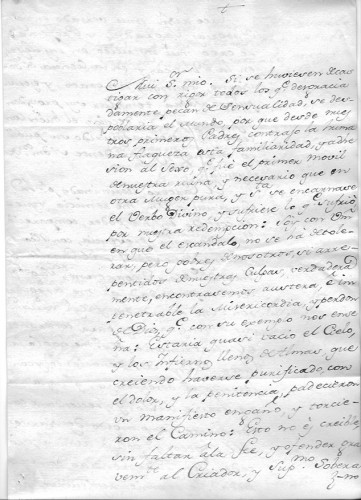 Mui S.or mio. Si se huviesen de cas
tigar con rigor todos los q.e desgracia
damente pecan de sensualidad, se des
poblaria el mundo, por que desde nues
tros primeros Padres contrajo la huma
na flaqueza esta familiaridad, y adhe
sion al Sexo, q.e fue el primer movil
de nuestra ruina, y necesario que en
otra Muger pura, y s.ta se encarnase
el Verbo Divino, y sufriese lo q.e sufrio
por nuestra redempcion: Soy con Vm
en que el escandalo, no se ha de tole
rar, pero pobres de nosotros, si arre
pentidos de nuestras Culpas, verdadera
mente, encontrasemos austera, é im
penetrable la Misericordia, y perdon
de Dios, q.e con su exemplo nos ense
ña: Estaria quasi vacio el Cielo,
y los Infiernos llenos de Almas, que
creiendo haverse purificado, con
el dolor, y la penitencia, padecieron
un manifiesto engaño, y torcie
ron el Camino: Esto no es creible,
sin faltar a la Fee, y ofender gra
vem.te al Criador, y Sup.mo Sobera